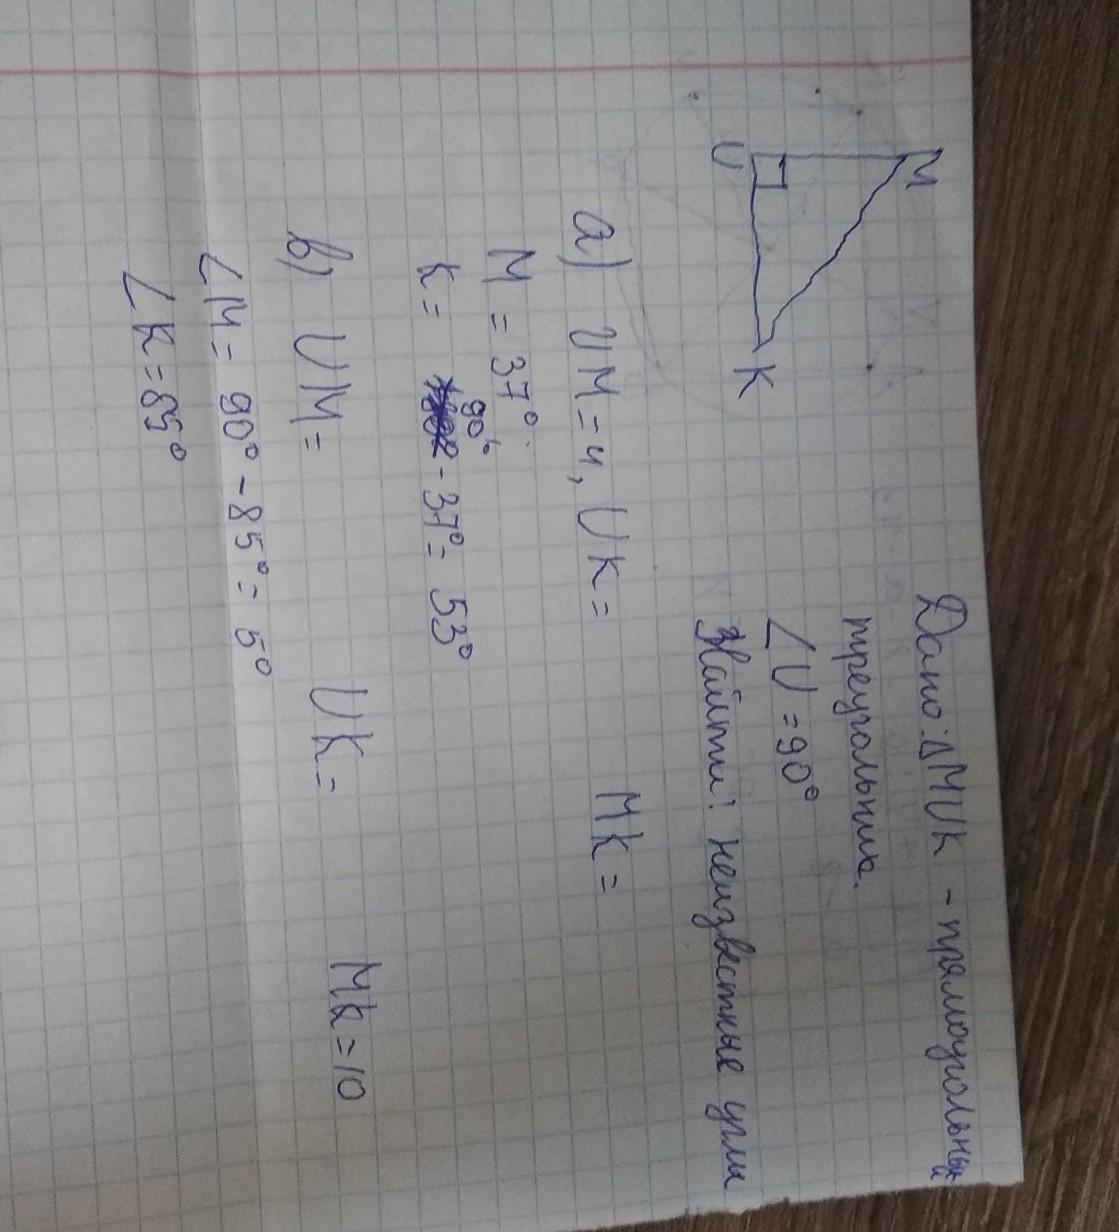 M
U
K
Дано: ΔMUK - прямоугольный
треугольник.
∠U = 90°
Найти: неизвестные углы
а) UM = 4, UK =    MK =
M = 37°.
K = 90° - 37° = 53°
в) UM =    UK =    MK = 10
∠M = 90° - 85° = 5°
∠K = 85°